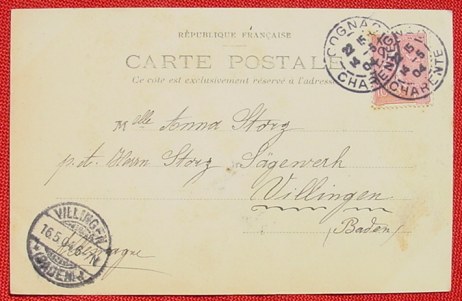 RÉPUBLIQUE FRANÇAISE
CARTE POSTALE
Ce côté est exclusivement réservé à l'adresse
COGNAC
22
15
-5
04
CHARENTE
COGNAC
15
-5
04
CHARENTE
Mlle Anna Storz
p. ad. Herrn Storz Sägewerk
Villingen
(Baden)
Allemagne
VILLINGEN
16.5.04.6-7N
(BADEN)